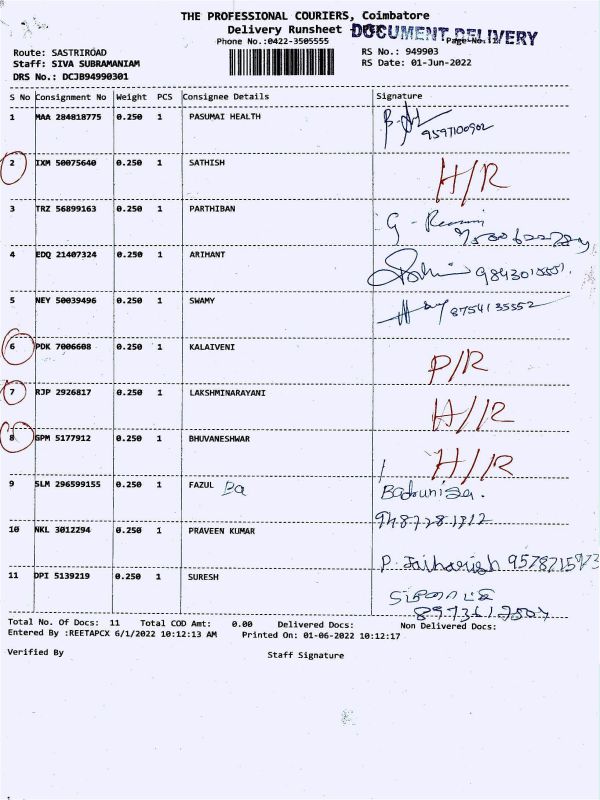 THE PROFESSIONAL COURIERS, Coimbatore
Delivery Runsheet DOCUMENT DELIVERY
Phone No.:0422-3505555 Page No.
Route: SASTRIROAD RS No.: 949903
Staff: SIVA SUBRAMANIAM RS Date: 01-Jun-2022
DRS No.: DCJB94990301
S No Consignment No Weight PCS Consignee Details Signature
1 MAA 284818775 0.250 1 PASUMAI HEALTH
9597100902
2 IXM 50075640 0.250 1 SATHISH H/R
3 TRZ 56899163 0.250 1 PARTHIBAN G -
4 EDQ 21407324 0.250 1 ARIHANT
5 NEY 50039496 0.250 1 SWAMY 8754135552
6 PDK 7006608 0.250 1 KALAIVENI P/R
7 RJP 2926817 0.250 1 LAKSHMINARAYANI H/R
8 GPM 5177912 0.250 1 BHUVANESHWAR H/R
9 SLM 296599155 0.250 1 FAZUL Ba Badrunisa.
10 NKL 3012294 0.250 1 PRAVEEN KUMAR
P. Jaiharish 9578715973
11 DPI 5139219 0.250 1 SURESH
Total No. Of Docs: 11 Total COD Amt: 0.00 Delivered Docs: Non Delivered Docs:
Entered By :REETAPCX 6/1/2022 10:12:13 AM Printed On: 01-06-2022 10:12:17
Verified By Staff Signature